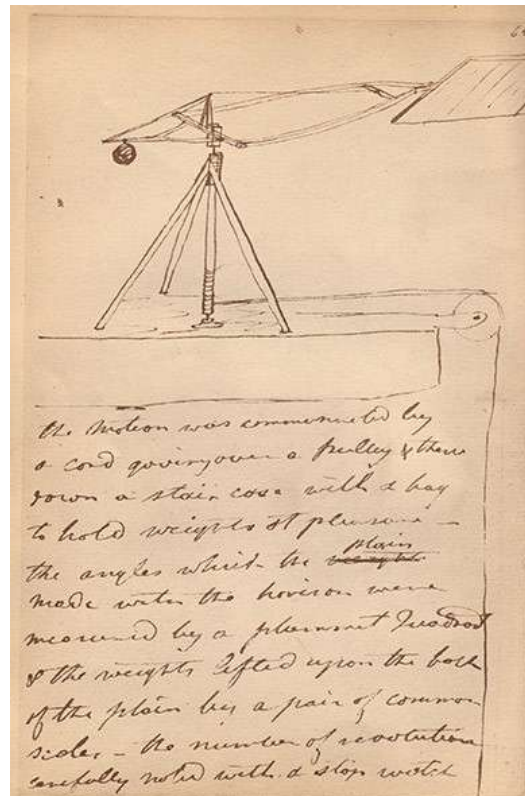 the motion was communicated by
a cord going over a pulley & thence
down a stair case with a bag
to hold weights at pleasure —
the angles which the plain
made with the horison were
measured by a plummet Quadrant
& the weights lifted upon the back
of the plain by a pair of common
scales — the number of revolutions
carefully noted with a stop watch